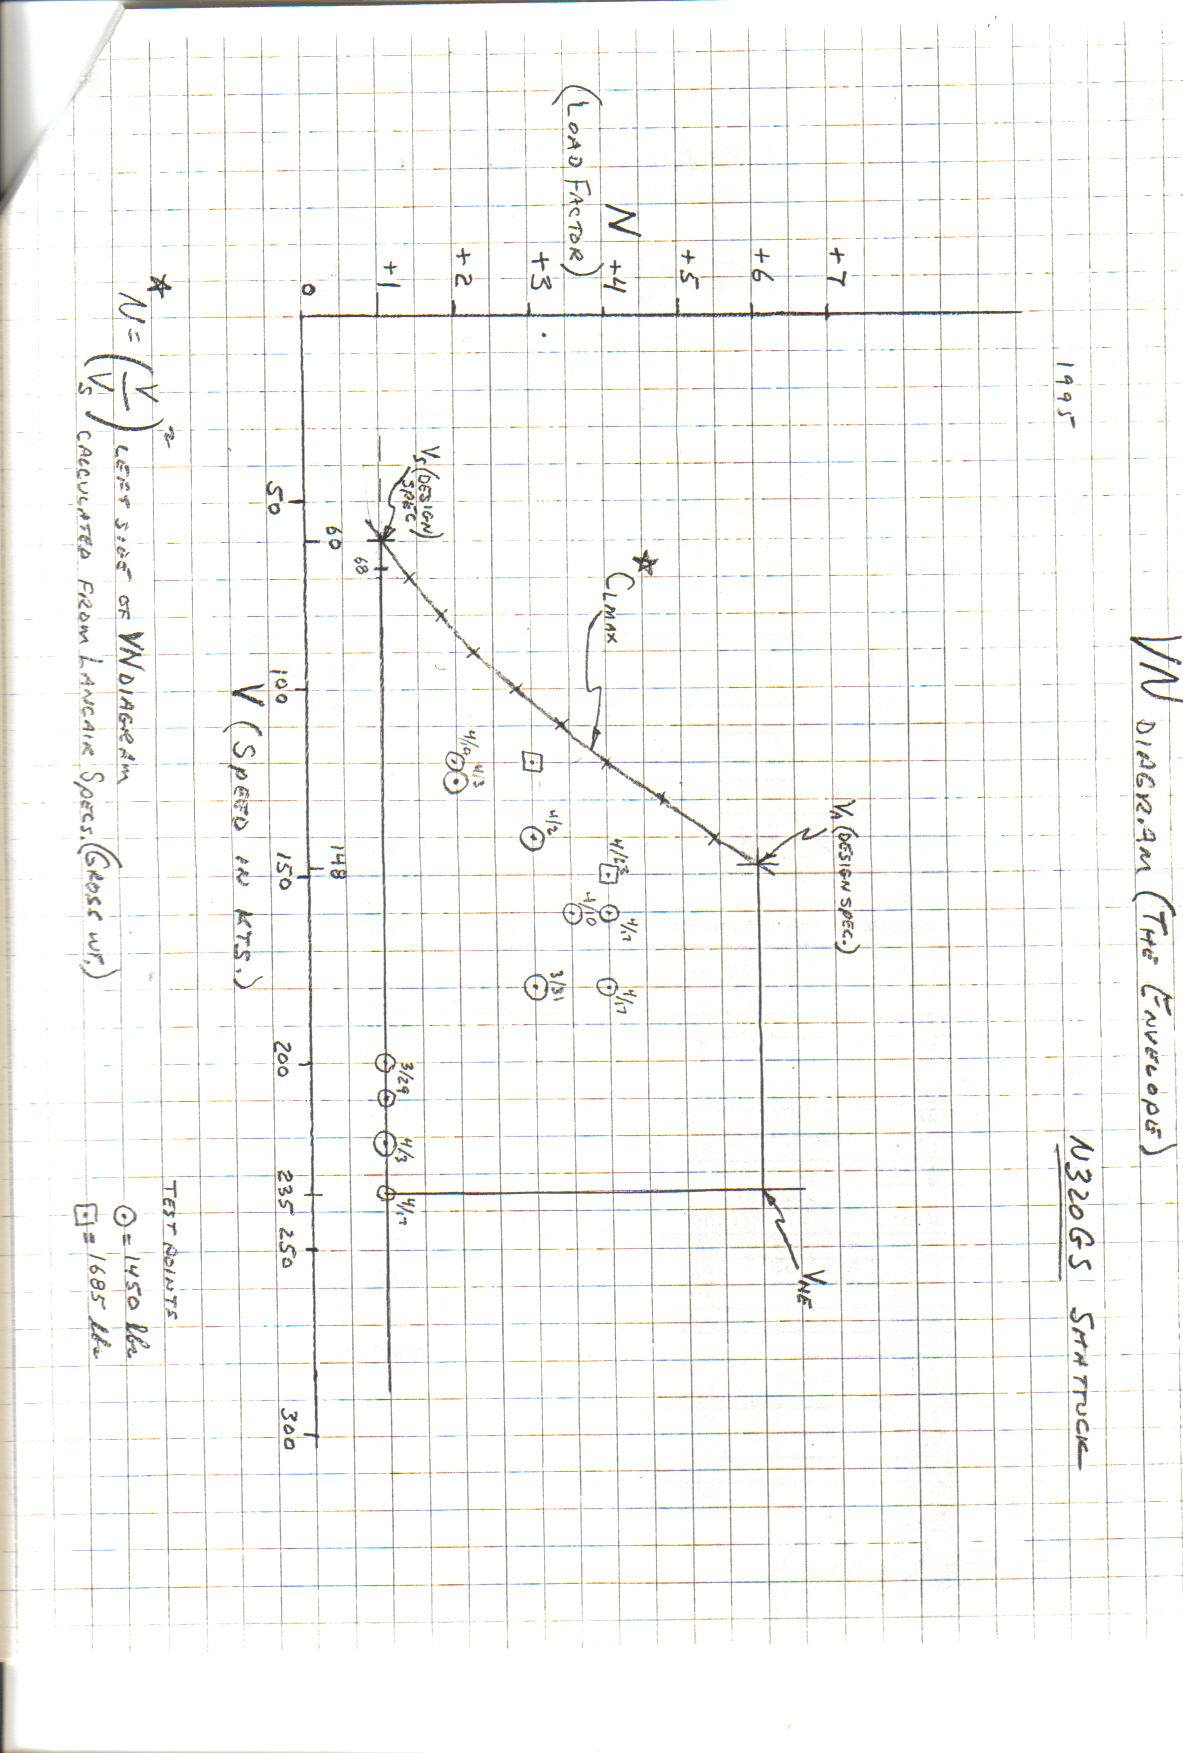 VN DIAGRAM (THE ENVELOPE)
1995
N320GS SHATTUCK
N
(LOAD FACTOR)
+7
+6
+5
+4
+3
+2
+1
0
VA (DESIGN SPEC.)
VNE
★ CLMAX
VS (DESIGN SPEC)
4/23
4/17
4/10
4/17
4/2
3/31
4/10
4/3
3/29
4/3
4/17
68
60
148
50
100
150
200
235
250
300
V (SPEED IN KTS.)
TEST POINTS
⊙ = 1450 lbs
⊡ = 1685 lbs
★ N = (V/VS)² LEFT SIDE OF VN DIAGRAM
CALCULATED FROM LANCAIR SPECS. (GROSS WT.)